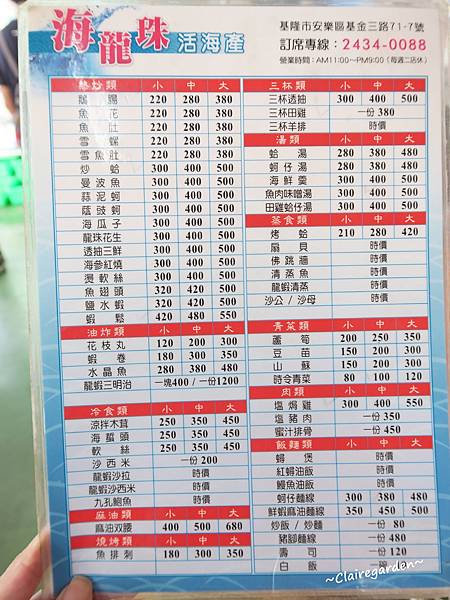 海龍珠 活海產
基隆市安樂區基金三路71-7號
訂席專線：2434-0088
營業時間：AM11:00~PM9:00（每週二店休）
熱炒類 小 中 大
鵝腸 220 280 380
魚花 220 280 380
魚肚 220 280 380
雪螺 220 280 380
雪魚肚 220 280 380
炒蛤 300 400 500
曼波魚 300 400 500
蒜泥蚵 300 400 500
蔭豉蚵 300 400 500
海瓜子 300 400 500
龍珠花生 300 400 500
透抽三鮮 300 400 500
海參紅燒 300 400 500
燙軟絲 300 400 500
魚翅頭 320 420 500
鹽水蝦 320 420 500
蝦鬆 420 480 550
油炸類 小 中 大
花枝丸 120 200 300
蝦卷 180 300 350
水晶魚 280 380 480
龍蝦三明治 一塊400 / 一份1200
冷食類 小 中 大
涼拌木茸 250 350 450
海蜇頭 250 350 450
軟絲 250 350 450
沙西米 一份 200
龍蝦沙拉 時價
龍蝦沙西米 時價
九孔鮑魚 時價
麻油類 小 中 大
麻油双腰 400 500 680
燒烤類 小 中 大
魚排刺 180 300 350
三杯類 小 中 大
三杯透抽 300 400 500
三杯田雞 一份 380
三杯羊排 時價
湯類 小 中 大
蛤湯 280 380 480
蚵仔湯 280 380 480
海鮮羹 300 400 500
魚肉味噌湯 300 400 500
田雞蛤仔湯 300 400 500
蒸食類 小 中 大
烤蛤 210 280 420
扇貝 時價
佛跳牆 時價
清蒸魚 時價
龍蝦清蒸 時價
沙公 / 沙母 時價
青菜類 小 中 大
蘆筍 200 250 350
豆苗 150 200 300
山蘇 150 200 300
時令青菜 80 100 120
肉類 小 中 大
塩焗雞 300 400 550
塩豬肉 一份 350
蜜汁排骨 一份 450
飯麵類 小 中 大
蟳煲 時價
紅蟳油飯 時價
鰻魚油飯 時價
蚵仔麵線 300 380 480
鮮蝦麻油麵線 350 450 500
炒飯 / 炒麵 一份 80
豬腳麵線 一份 480
壽司 一份 120
白飯
~Clairegarden~